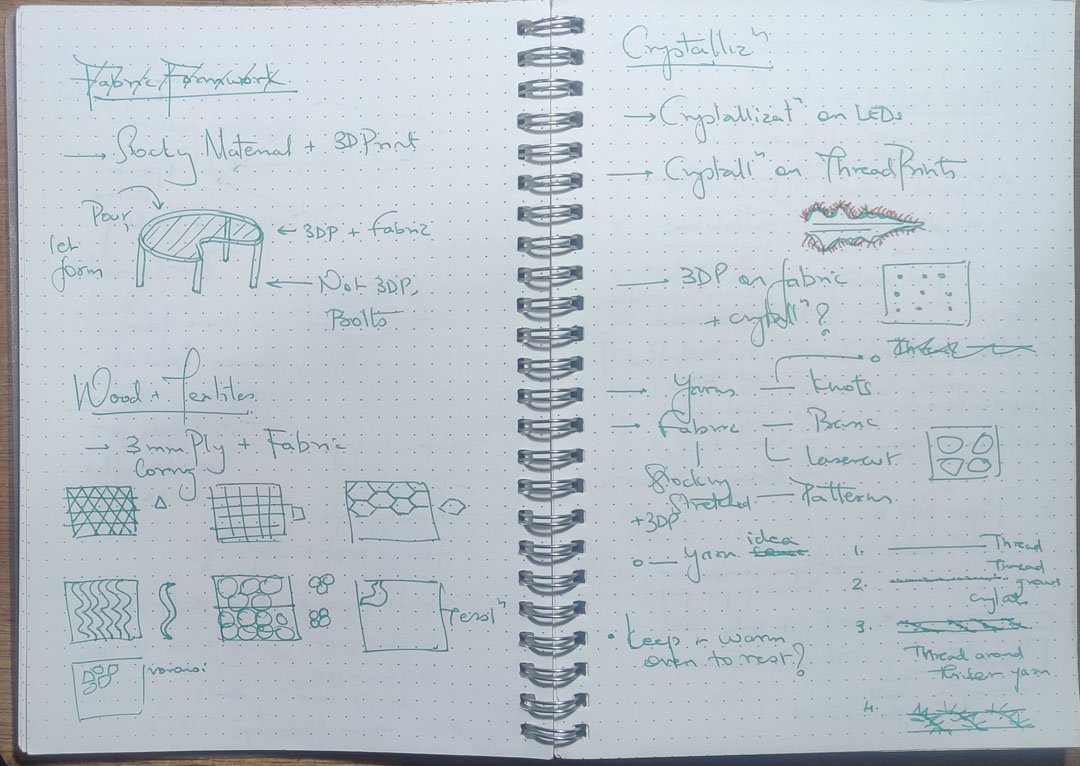 Fabric Formwork
→ Stocky Material + 3D Print
Pour,
let
form
← 3DP + fabric
← Not 3DP,
Bolts
Wood + Textiles
→ 3mm Ply + Fabric
Voronoi
Crystallizⁿ
→ Crystallizatⁿ on LEDs
→ Crystallⁿ on ThreadPrints
→ 3DP on fabric
+ crystallⁿ?
Thread
→ Yarns — Knots
→ Fabric —
Lasercut
Stocky
Stretched — Patterns
+3DP
o — Yarn idea
1. Thread
2. Thread
grows
crystals
3.
Thread around
thicker yarn
4.
• Keep in warm
oven to rest?